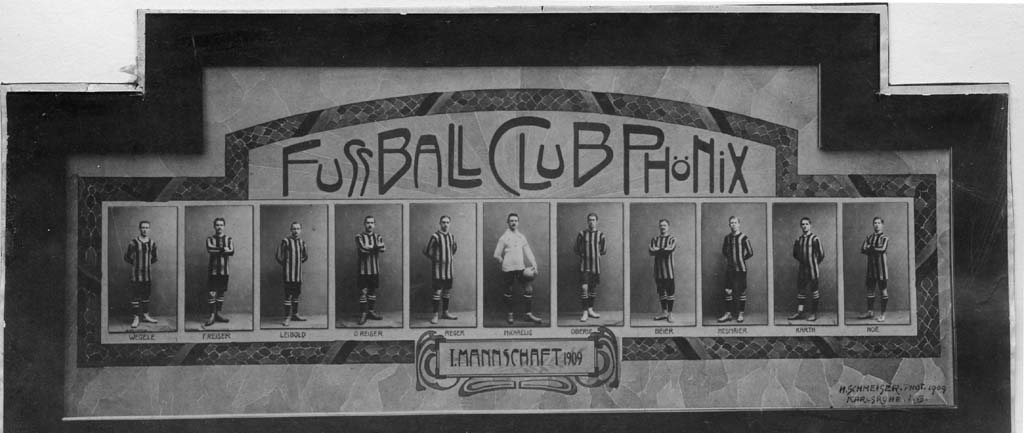 FUSSBALL CLUB PHÖNIX
WEGELE F.REISER LEIBOLD O.REISER HEGER MICHAELIS OBERLE BEIER NEUMAIER KARTH NOË
I. MANNSCHAFT 1909
H. SCHMEISER. PHOT. 1909
KARLSRUHE i. B.